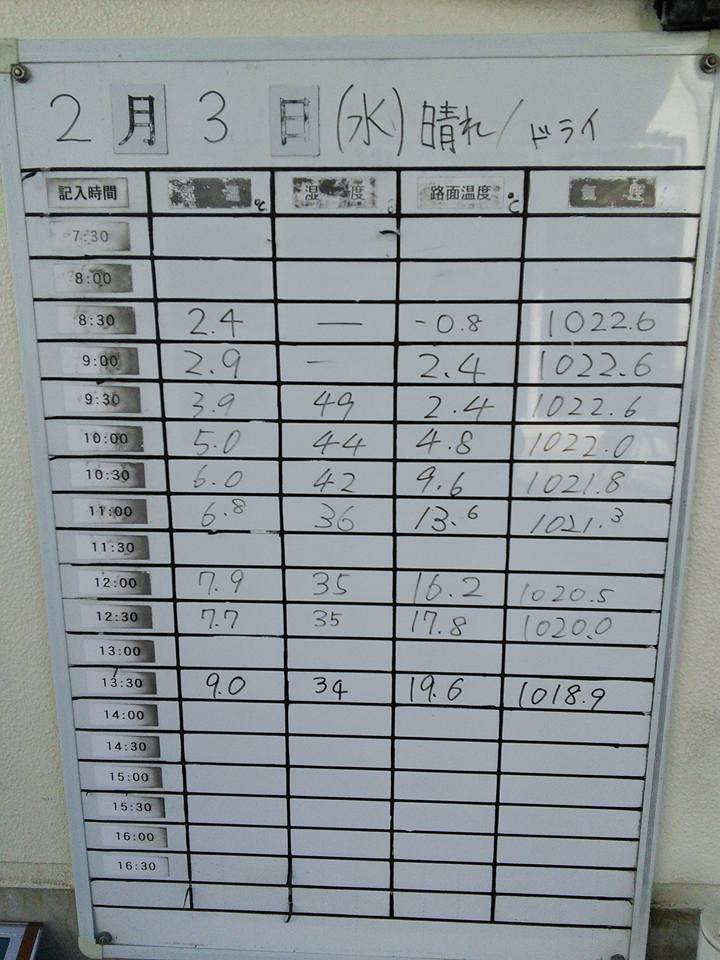 2月3日(水)晴れ/ドライ
記入時間 気温 ℃ 湿度 路面温度 ℃ 気圧
7:30
8:00
8:30 2.4 — -0.8 1022.6
9:00 2.9 — 2.4 1022.6
9:30 3.9 49 2.4 1022.6
10:00 5.0 44 4.8 1022.0
10:30 6.0 42 9.6 1021.8
11:00 6.8 36 13.6 1021.3
11:30
12:00 7.9 35 16.2 1020.5
12:30 7.7 35 17.8 1020.0
13:00
13:30 9.0 34 19.6 1018.9
14:00
14:30
15:00
15:30
16:00
16:30